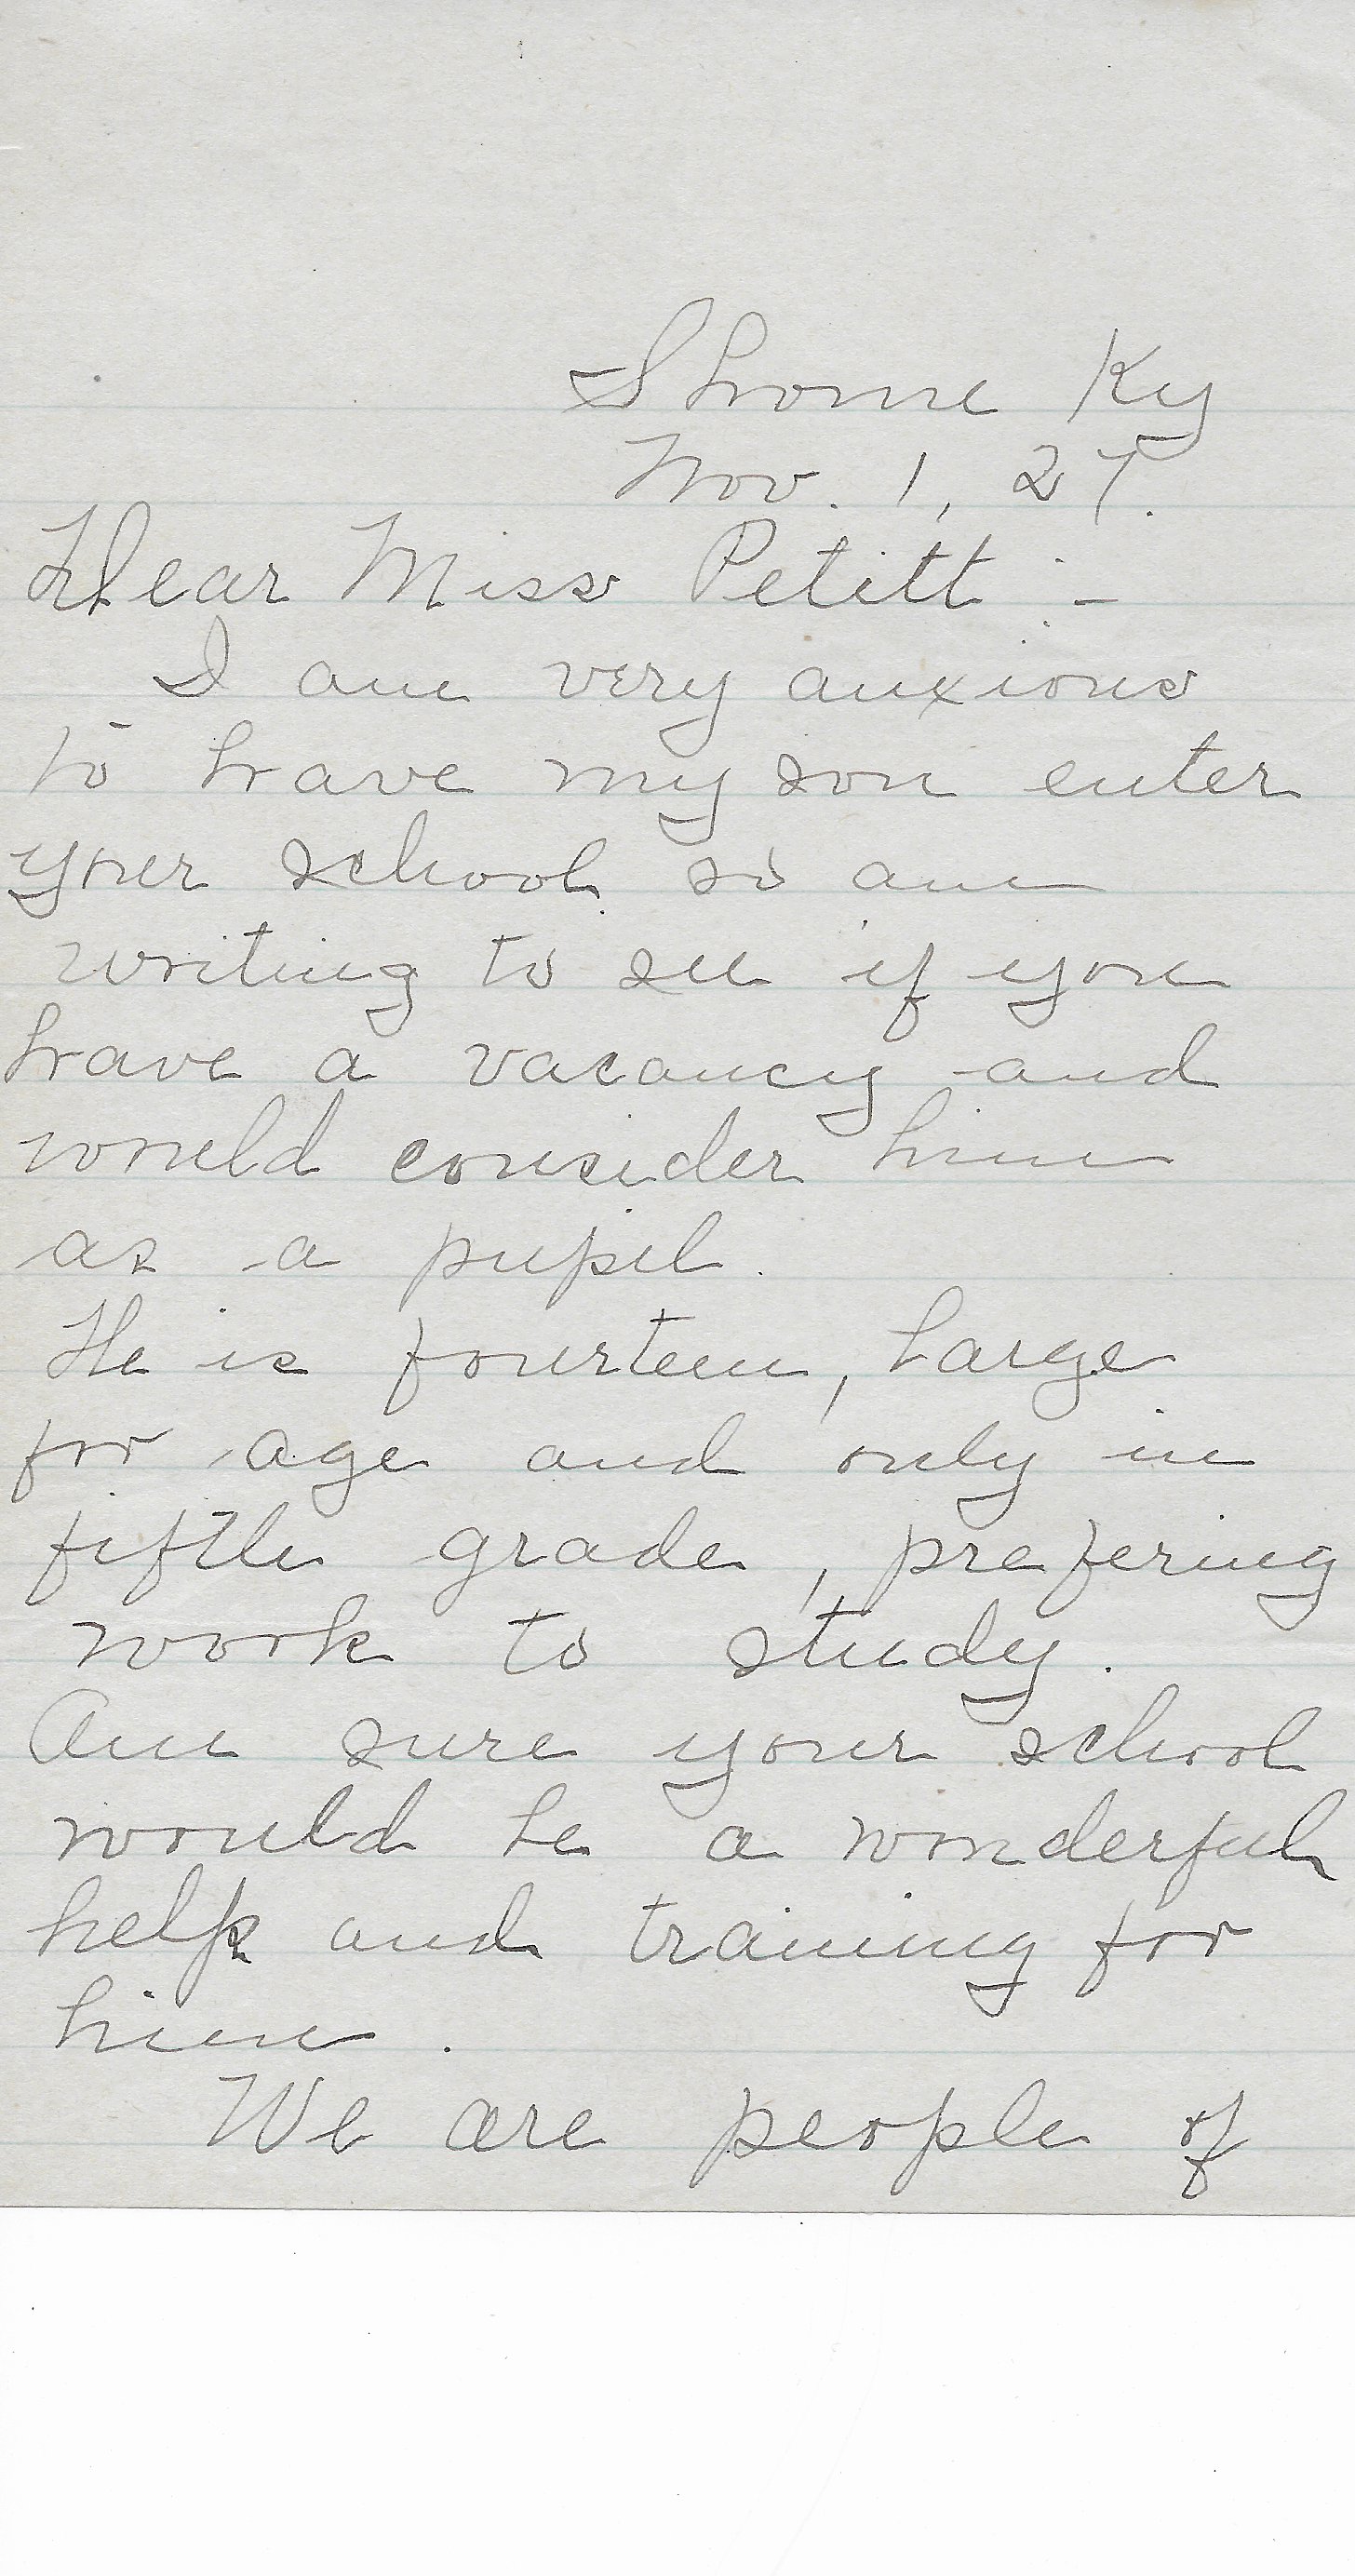 Shome Ky
Nov. 1, 27.
Dear Miss Petitt :-
I am very anxious
to have my son enter
your school so am
writing to see if you
have a vacancy and
would consider him
as a pupil.
He is fourteen, large
for age and only in
fifth grade, prefering
work to study.
Am sure your school
would be a wonderful
help and training for
him.
We are people of